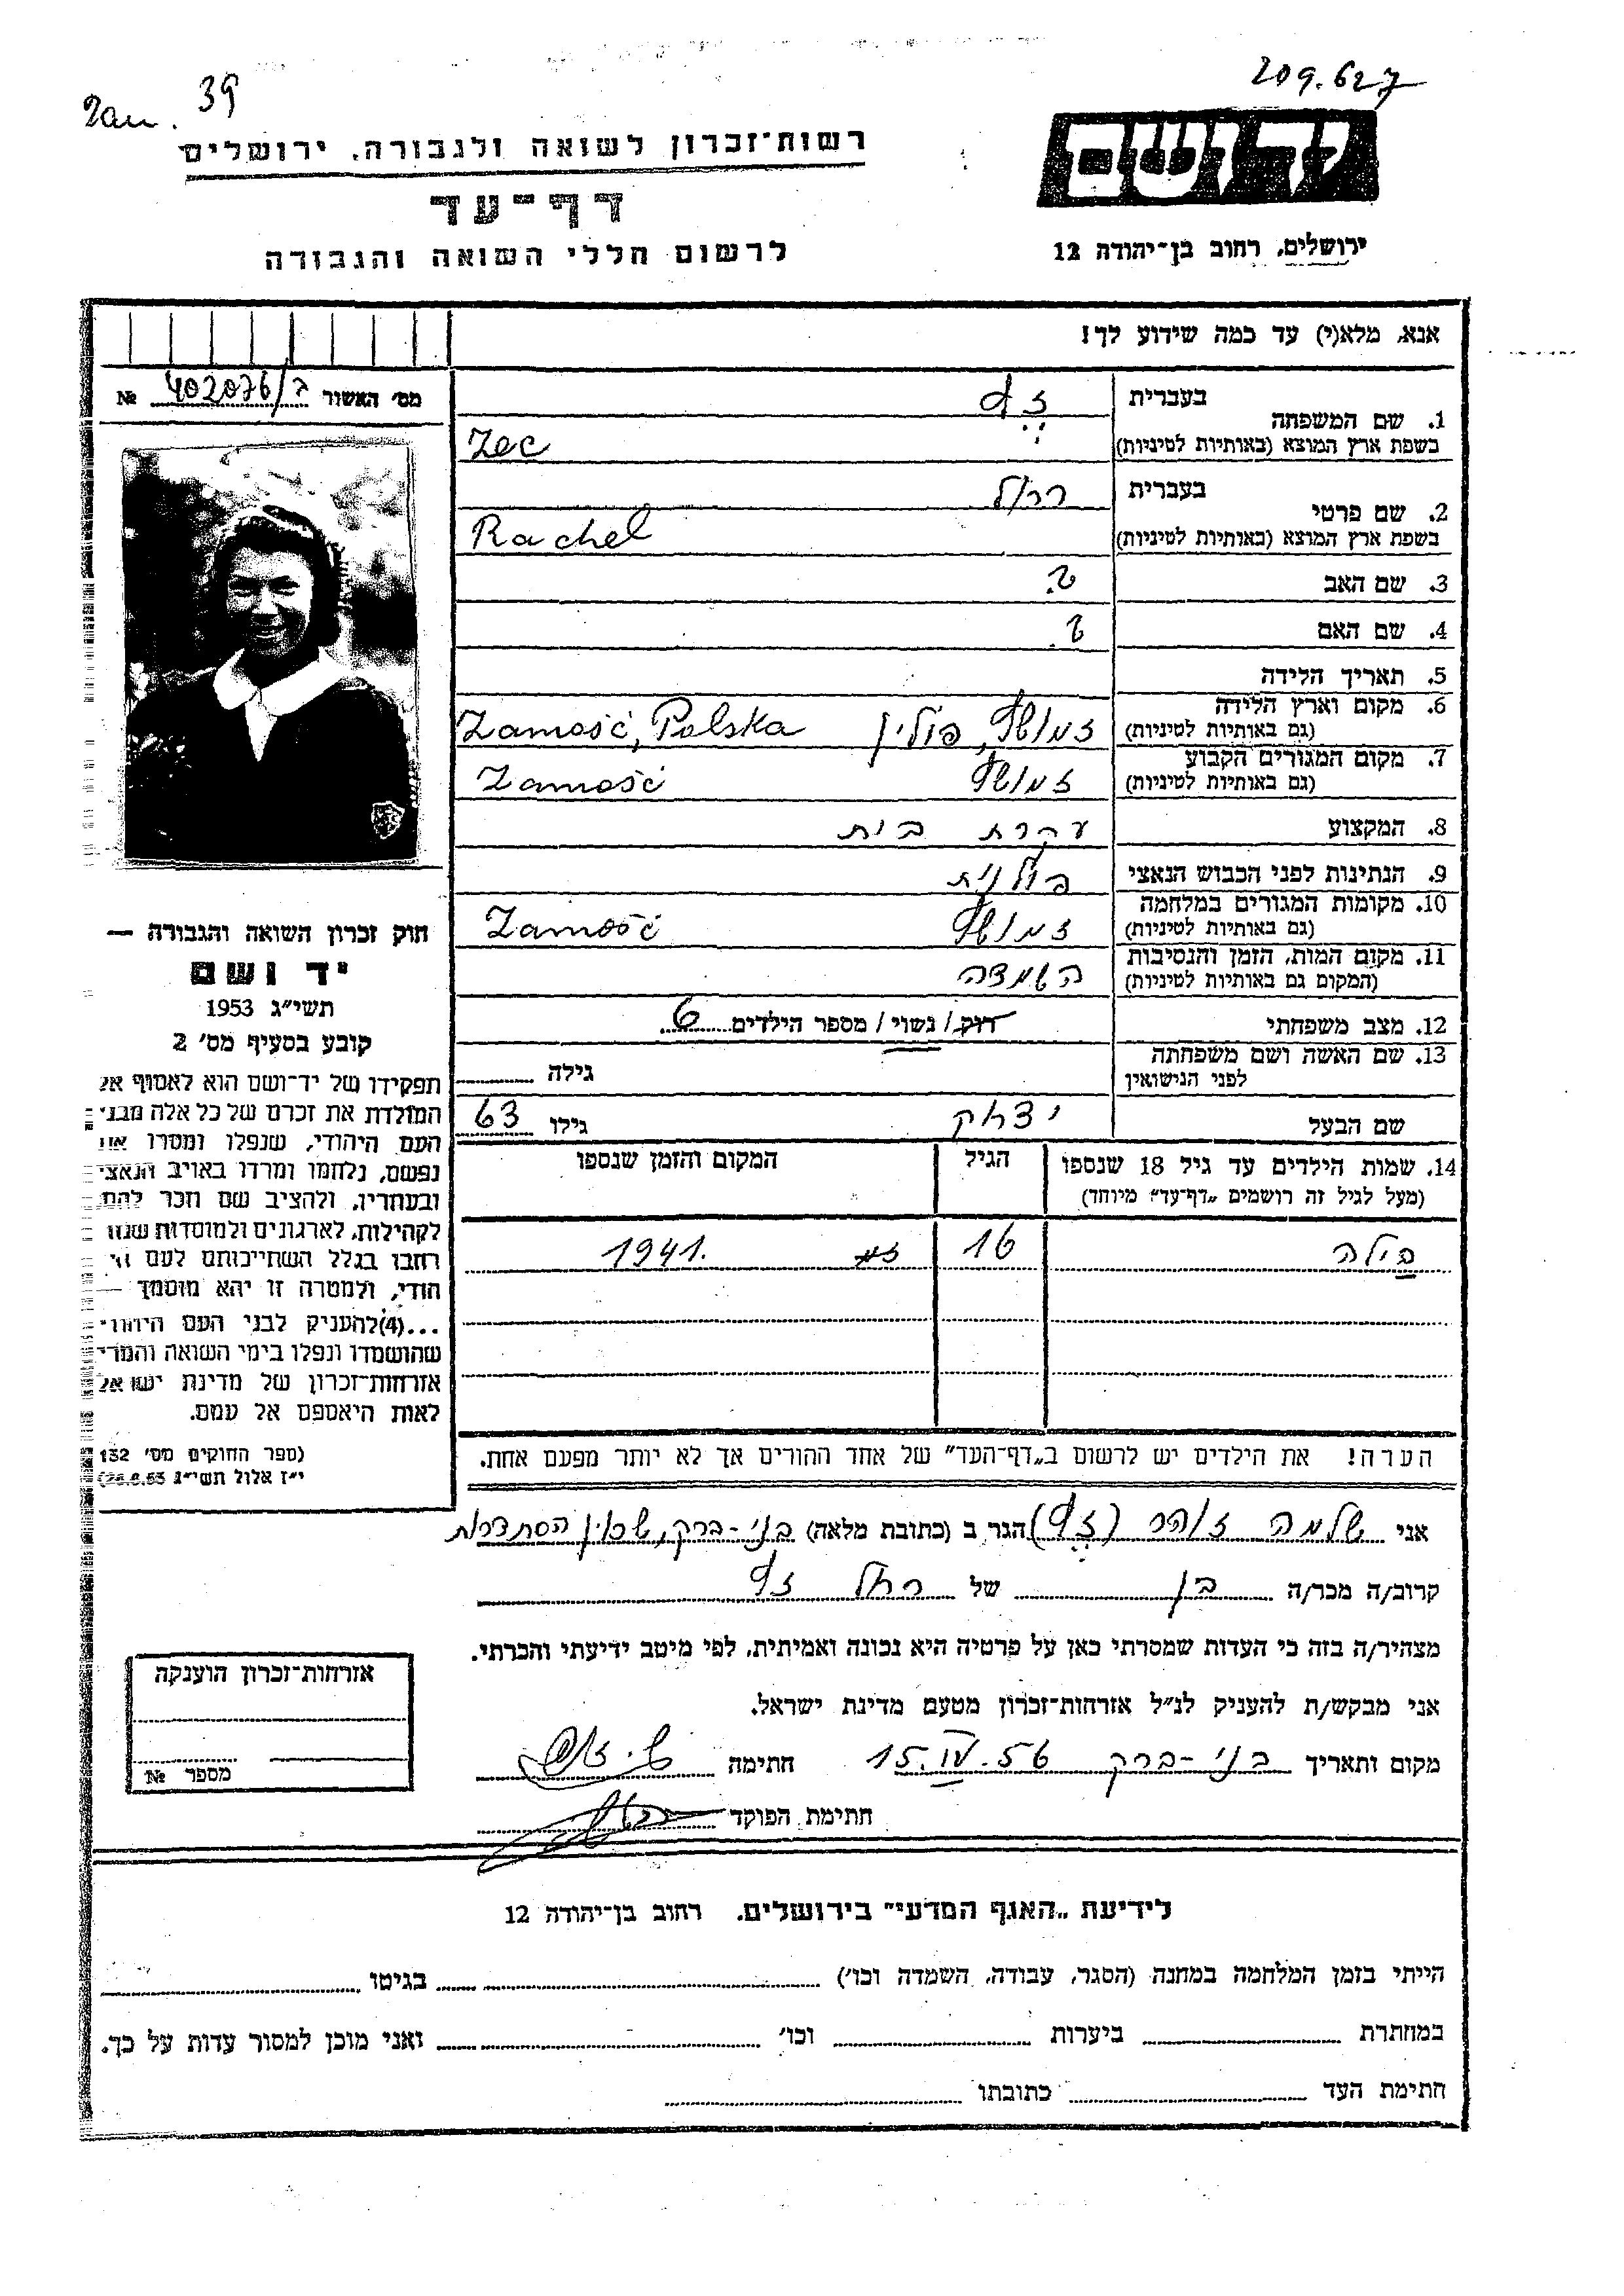 209.627
Zam. 39
יד ושם
רשות־זכרון לשואה ולגבורה, ירושלים
דף־עד
לרשום חללי השואה והגבורה
ירושלים, רחוב בן־יהודה 12
אנא, מלא(י) עד כמה שידוע לך!
מס׳ האשור 402076/ № 
1. שם המשפחה
בעברית
בשפת ארץ המוצא (באותיות לטיניות) Zec
2. שם פרטי
בעברית רחל
בשפת ארץ המוצא (באותיות לטיניות) Rachel
3. שם האב ?
4. שם האם ?
5. תאריך הלידה
6. מקום וארץ הלידה
(גם באותיות לטיניות) פולין Zamość, Polska
7. מקום המגורים הקבוע
(גם באותיות לטיניות) Zamość
8. המקצוע עקרת בית
9. הנתינות לפני הכבוש הנאצי פולנית
10. מקומות המגורים במלחמה
(גם באותיות לטיניות) Zamość
11. מקום המות, הזמן והנסיבות
(המקום גם באותיות לטיניות) השמדה
12. מצב משפחתי רוק/ נשוי/ מספר הילדים 6
13. שם האשה ושם משפחתה
לפני הנישואין גילה
שם הבעל יצחק גילו 63
14. שמות הילדים עד גיל 18 שנספו
(מעל לגיל זה רושמים „דף־עד״ מיוחד)
הגיל
המקום והזמן שנספו
בילה 16 1941.
הערה! את הילדים יש לרשום ב„דף־העד״ של אחד ההורים אך לא יותר מפעם אחת.
חוק זכרון השואה והגבורה —
יד ושם
תשי״ג 1953
קובע בסעיף מס׳ 2
תפקידו של יד־ושם הוא לאסוף אל
המולדת את זכרם של כל אלה מבני
העם היהודי, שנפלו ומסרו את
נפשם, נלחמו ומרדו באויב הנאצי
ובעוזריו, ולהציב שם וזכר להם,
לקהילות, לארגונים ולמוסדות שנח־
רבו בגלל השתייכותם לעם הי־
הודי, ולמטרה זו יהא מוסמך —
...(4)להעניק לבני העם היהודי
שהושמדו ונפלו בימי השואה והמרי
אזרחות־זכרון של מדינת ישראל
לאות היאספם אל עמם.
(ספר החוקים מס׳ 132
י״ז אלול תשי״ג 28.8.53)
אני שלמה זוהר הגר ב (כתובת מלאה) בני-ברק, שכון הסתדרות
קרוב/ה מכר/ה בן של רחל
מצהיר/ה בזה כי העדות שמסרתי כאן על פרטיה היא נכונה ואמיתית, לפי מיטב ידיעתי והכרתי.
אני מבקש/ת להעניק לנ״ל אזרחות־זכרון מטעם מדינת ישראל.
מקום ותאריך בני-ברק 15.IV.56 חתימה
חתימת הפוקד
אזרחות־זכרון הוענקה
מספר №
לידיעת „האגף המדעי״ בירושלים, רחוב בן־יהודה 12
הייתי בזמן המלחמה במחנה (הסגר, עבודה, השמדה וכו׳) בגיטו
במחתרת ביערות וכו׳ ואני מוכן למסור עדות על כך.
חתימת העד כתובתו